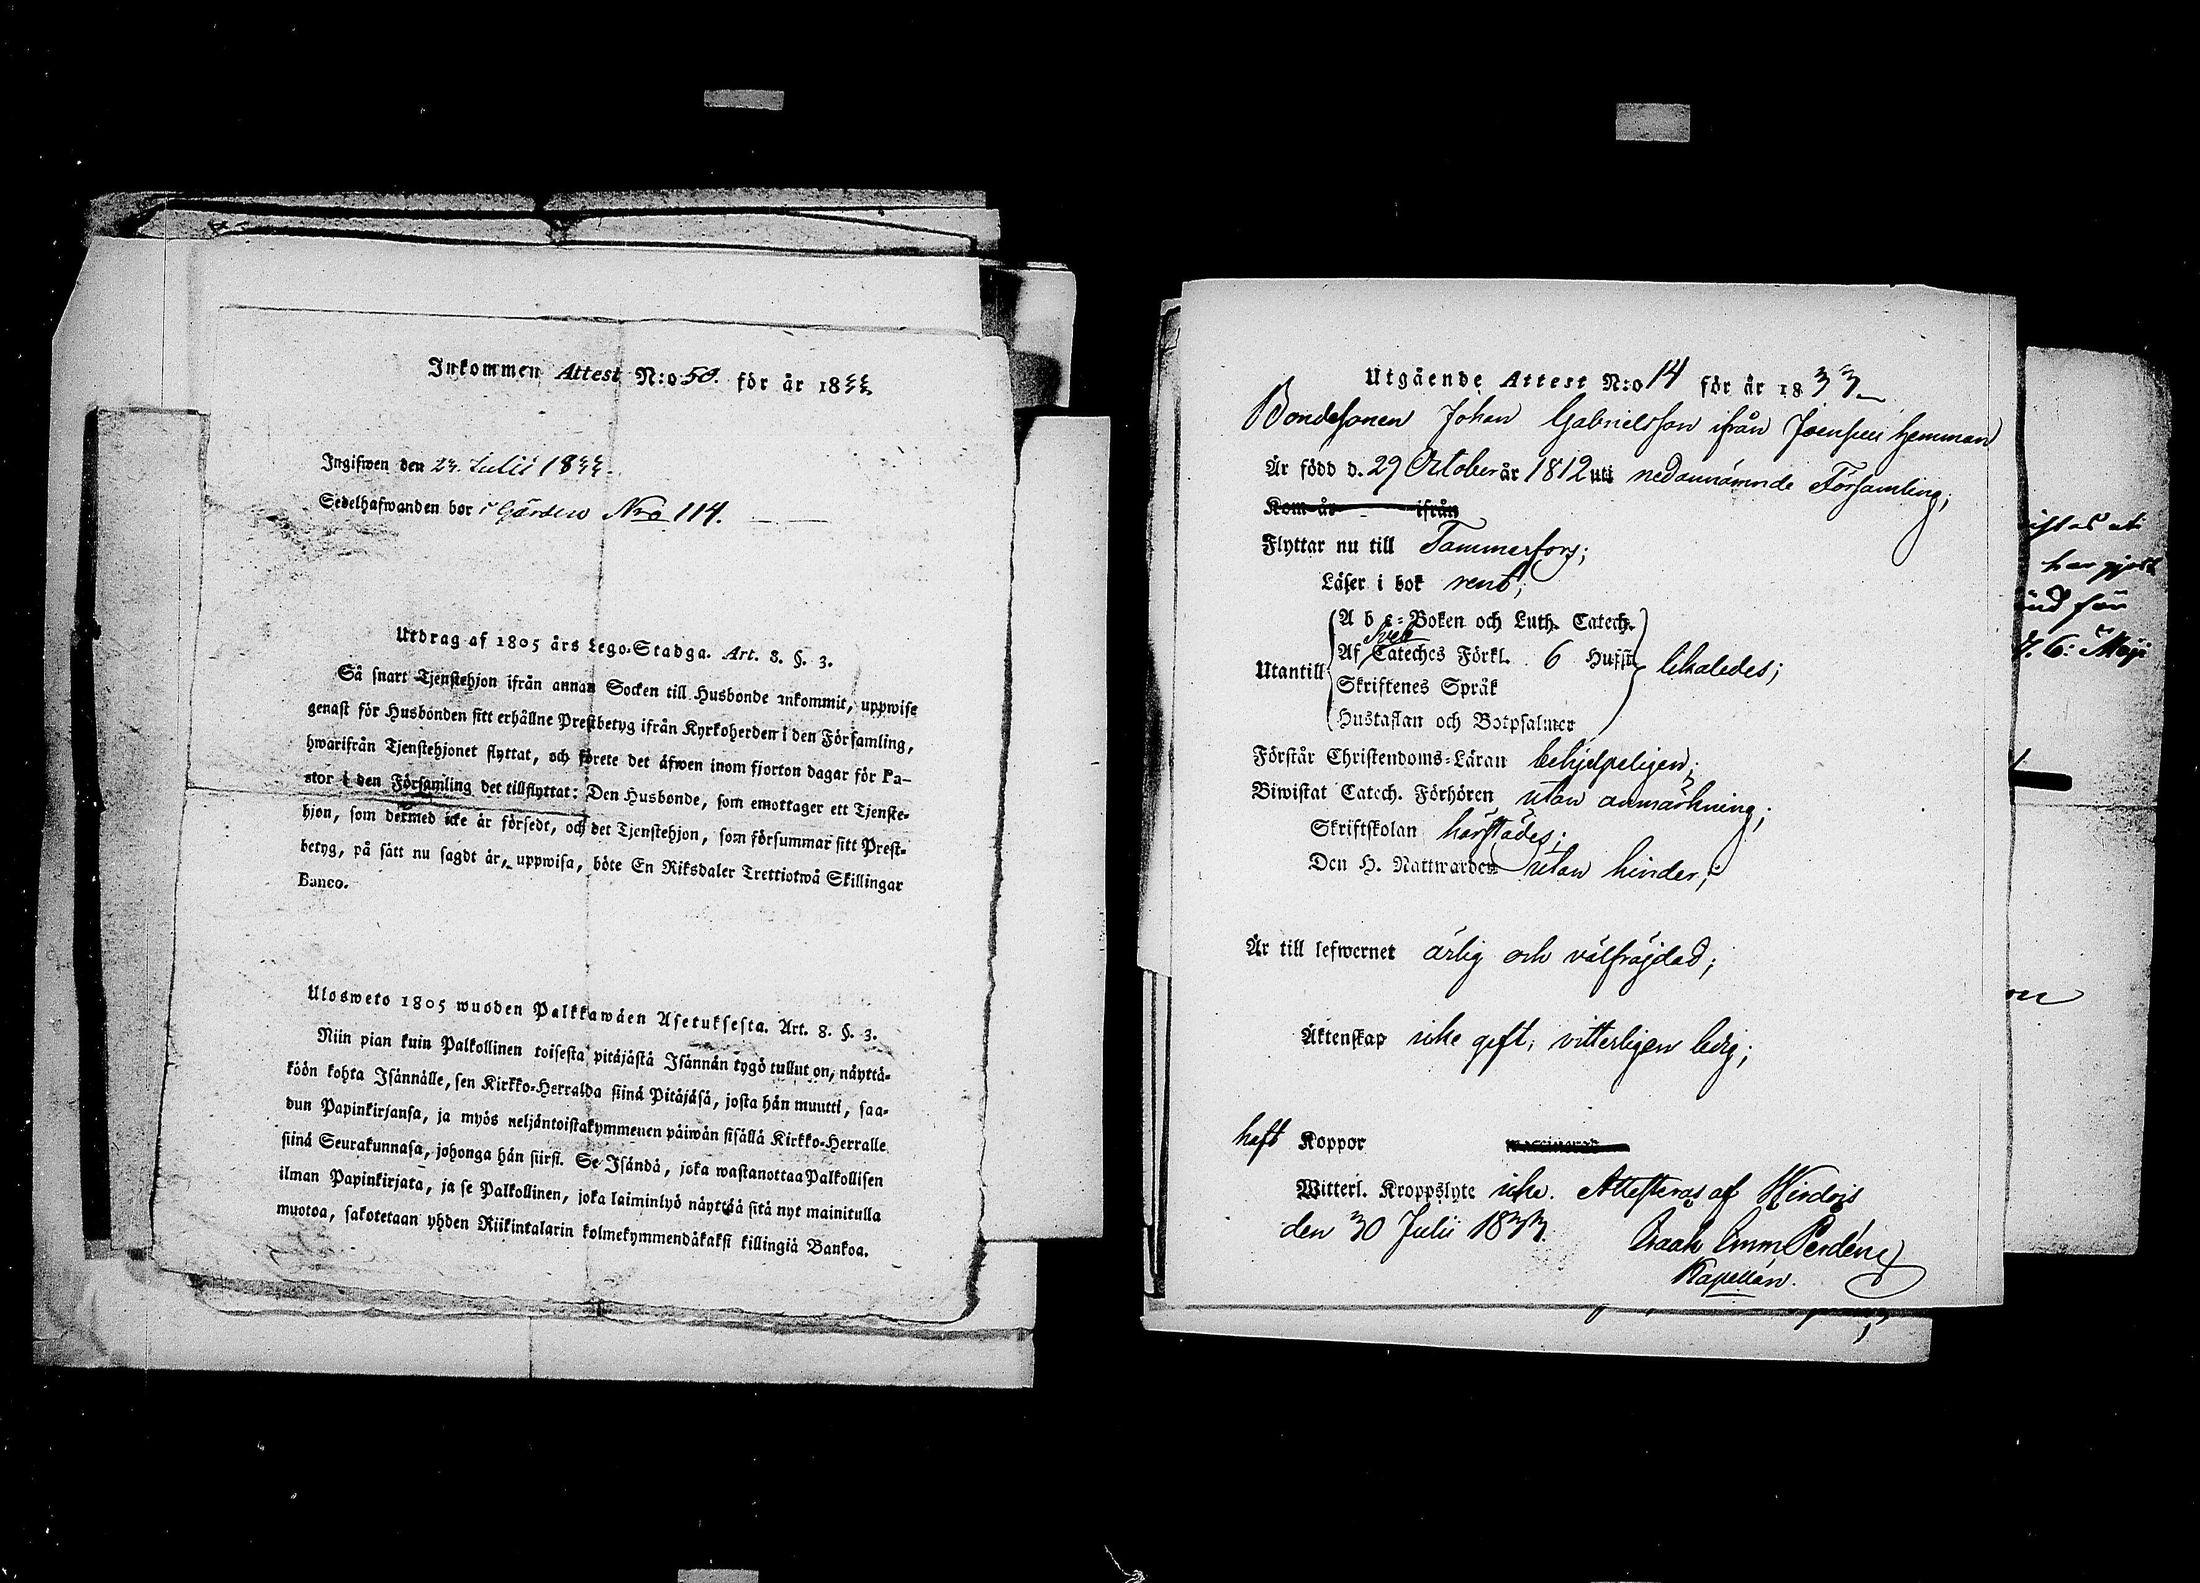 Inkommen Attest N:o 50. för år 1833.
Ingifwen den 23. Julii 1833.
Sedelhafwanden bor i Gården Nro 114.
Utdrag af 1805 års Lego-Stadga. Art. 8. §. 3.
Så snart Tjenstehjon ifrån annan Socken till Husbonde inkommit, uppwise
genast för Husbonden sitt erhållne Prestbetyg ifrån Kyrkoherden i den Församling,
hwarifrån Tjenstehjonet flyttat, och förete det äfwen inom fjorton dagar för Pa-
stor i den Församling det tillflyttat: Den Husbonde, som emottager ett Tjenste-
hjon, som dermed icke är försedt, och det Tjenstehjon, som försummar sitt Prest-
betyg, på sätt nu sagdt är, uppwisa, böte En Riksdaler Trettiotwå Skillingar
Banco.
Ulosweto 1805 wuoden Palkkawäen Asetuksesta. Art. 8. §. 3.
Niin pian kuin Palkollinen toisesta pitäjästä Isännän tygö tullut on, näyttä-
köön kohta Isännälle, sen Kirkko-Herralda siinä Pitäjäsä, josta hän muutti, saa-
dun Papinkirjansa, ja myös neljäntoistakymmenen päiwän sisällä Kirkko-Herralle
siinä Seurakunnasa, johonga hän siirsi. Se Isändä, joka wastanottaa Palkollisen
ilman Papinkirjata, ja se Palkollinen, joka laiminlyö näyttää sitä nyt mainitulla
muotoa, sakotetaan yhden Riikintalarin kolmekymmendäkaksi killingiä Bankoa.
Utgående Attest N:o 14 för år 1833
Bondesonen Johan Gabrielsson ifrån Joensuu hemman
Är född d. 29 October år 1812 uti nedannämnde Församling;
Kom år ifrån
Flyttar nu till Tammerfors;
Läser i bok rent;
A b c-Boken och Luth. Catech.
Sveb
Af Cateches Förkl. 6 Hufst
Utantill likaledes;
Skriftenes Språk
Hustaflan och Botpsalmer
Förstår Christendoms-Läran behjelpeligen;
Biwistat Catech. Förhören utan anmärkning;
Skriftskolan härstädes;
Den H. Nattwarden utan hinder;
Är till lefwernet ärlig och välfräjdad;
Äktenskap icke gift, vitterligen ledig;
haft Koppor
Witterl. Kroppslyte icke. Attesteras af Hirdois
den 30 Julii 1833.
Isaak Emm Perdén
Kapellan.
har gjort
för
d. 6: Maji